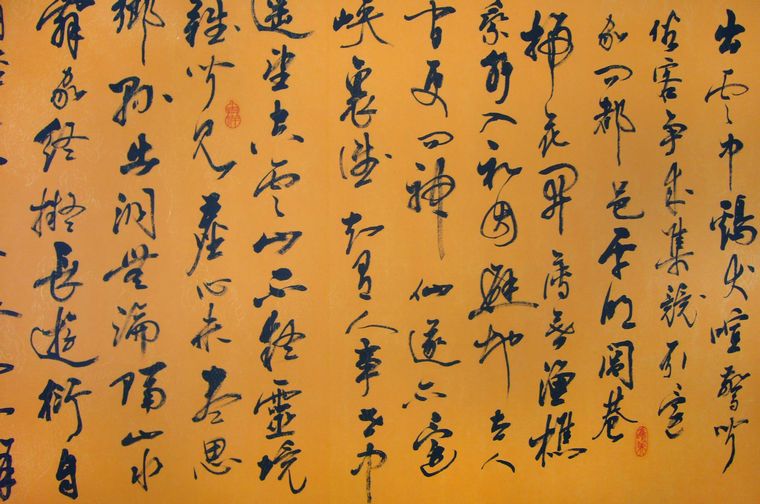 出雲中鷄犬喧驚聞
俗客争來集競引還
家問都邑平明閭巷
掃花開薄暮漁樵
乘水入初因避地去人
間更問神仙遂不還
峽裏誰知有人事世中
遥望空雲山不疑靈境
難聞見塵心未盡思
鄉縣出洞無論隔山水
辭家終擬長遊衍自